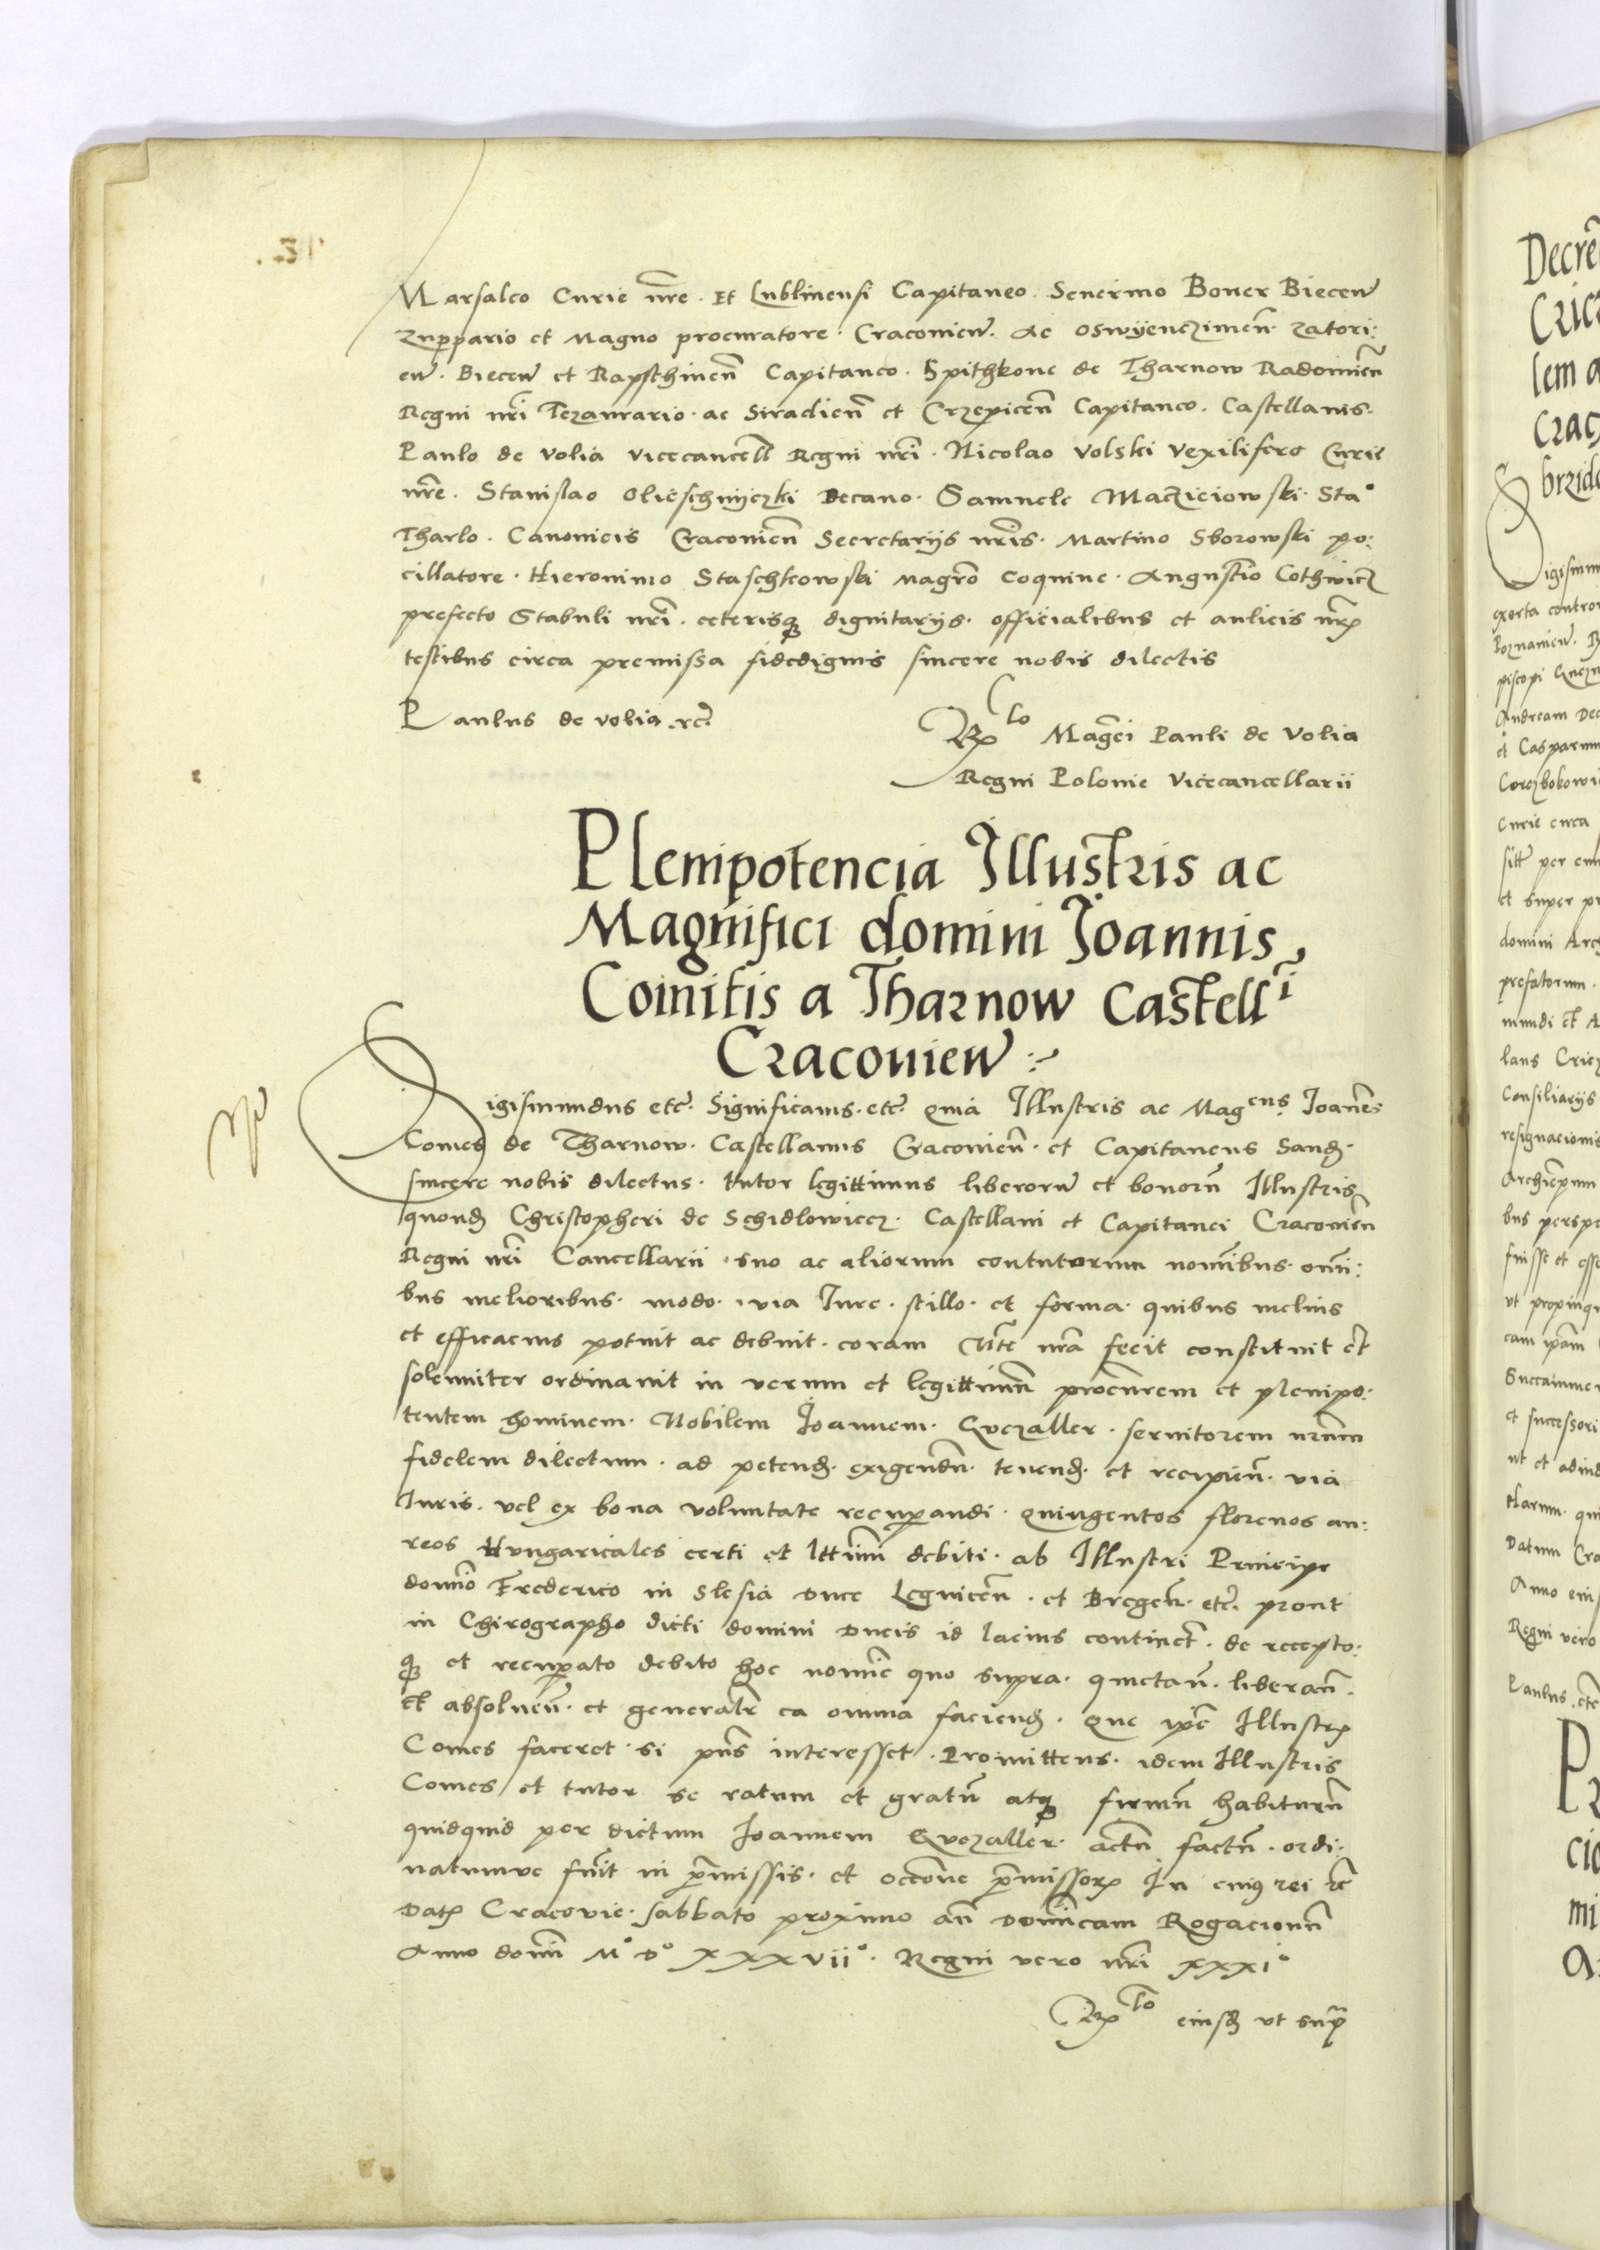 Marsalco Curie nr̃e. Et Lublinensi Capitaneo. Severino Boner Biecen̄
Zuppario et Magno procuratore. Craconien̄. Ac Oswyenczimen̄ Zatori:
en̄. Biecen̄ et Rapsthinen̄ Capitaneo. Spithkone de Tharnow Radomien̄
Regni nr̃i Tezaurario. ac Siradien̄ et Crzepicen̄ Capitaneo. Castellanis.
Paulo de Volia vicecancell̄ Regni nr̃i. Nicolao Volski Vexilifero Curie
nr̃e. Stanislao Olieschnyczki Decano. Samuele Maczieiowski. Sta°
Tharlo. Canonicis Cracouien̄ Secretarijs nr̃is. Martino Sborowski po:
cillatore. Hieronimo Staschkowski magr̃o coquine. Augustino Cothwicz
prefecto Stabuli nr̃i. ceterisq̃ dignitarijs. officialibus et aulicis nr̃is
testibus circa premissa fidedignis sincere nobis dilectis
Paulus de volia etc̃
R̃lo Magc̃i Pauli de Volia
Regni Polonie Vicecancellarii
Plenipotencia Illustris ac
Magnifici domini Joannis
Comitis a Tharnow Castell̃i
Cracouien̄
Sigismundus etc̃. Significamus. etc̃. quia Illustris ac Magcus Joañes
Comes de Tharnow. Castellanus Cracouien̄. et Capitaneus Sand.
sincere nobis dilectus. tutor legittimus liberorū et bonorū Illustris
quond̃ Christopheri de Schidlowiecz. Castellani et Capitanei Cracouien̄
Regni nr̃i Cancellarii. suo ac aliorum contutorum nom̃ibus. om̃i:
bus melioribus. modo. via Jure. stillo. et forma. quibus melius
et efficacius potuit ac debuit. coram Mte nr̃a fecit constituit et
solenniter ordinauit in verum et legittimū procur̃em et plenipo:
tentem hominem. Nobilem Joannem. Quezaller. seruitorem nr̃um
fidelem dilectum. ad petend̃. exigendū. tenend̃. et recipien̄. via
Juris. vel ex bona voluntate recuꝑandi. quingentos florenos au:
reos Hungaricales certi et ltt̃imi debiti. ab Illustri Principe
dom̃o Frederico in Slesia Duce Legnicen̄. et Bregen̄. etc̃. prout
in Chirographo dicti domini Ducis id lacius continet̃. de recepto:
q̃ et recuꝑato debito hoc nom̃ie quo supra. quictan̄. liberan̄.
et absoluen̄. et generalr̃ ea omnia faciend̃. que ip̃e Illustris
Comes faceret si pn̄s interesset. Promittens. idem Illustris
Comes et tutor se ratum et gratū atq̃ firmū habiturū
quidquid per dictum Joannem Quezaller. actū factū. ordi:
natumue fuer̃it in p̃missis. et occõne p̃missorꝫ In cuiꝰ rei etc̃
Datꝫ Cracovie. sabbato proximo an̄ Domĩcam Rogacionū
Anno domĩ M° D° XXXVii°. Regni vero nr̃i XXXI°
R̃lo eiusd̃ vt supr̃